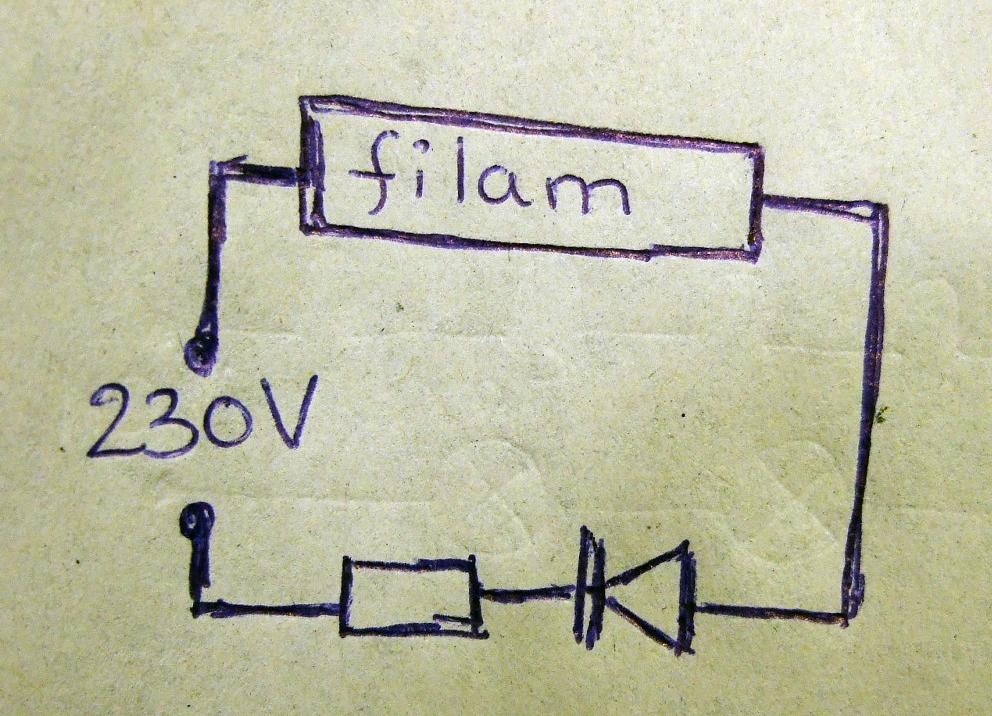 filam
230V